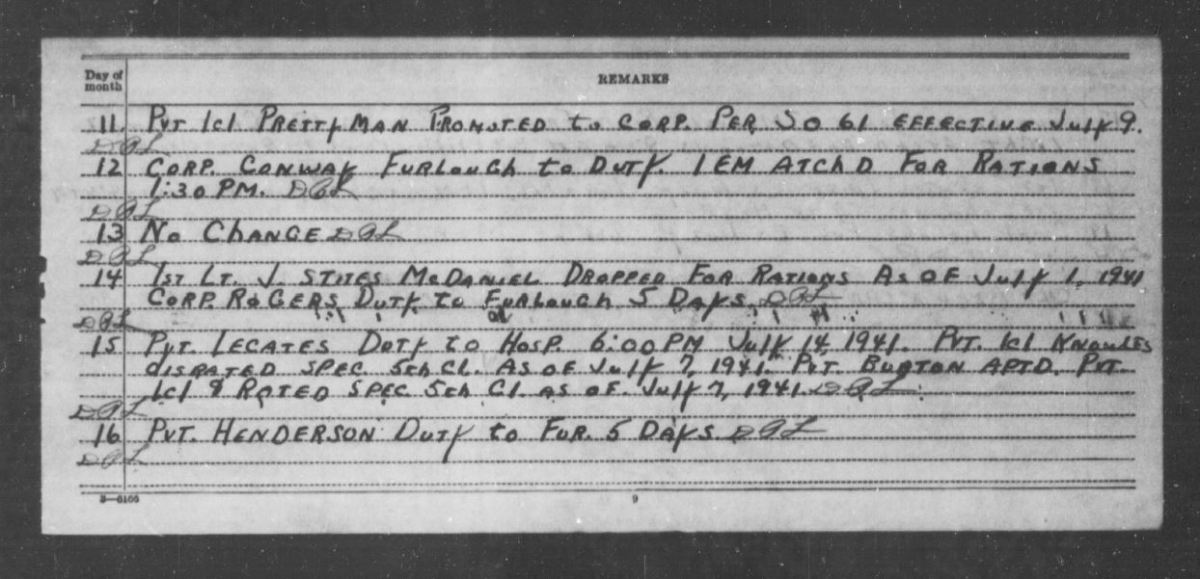 Day of month REMARKS
11 Pvt 1cl Prettyman Promoted to Corp. Per SO 61 effective July 9.
DGL
12 Corp. Conway Furlough to Duty. 1 EM Atchd For Rations
1:30 PM. DGL
DGL
13 No Change DGL
DGL
14 1st Lt. J. Stites McDaniel Dropped For Rations As of July 1, 1941
Corp. Rogers Duty to Furlough 5 Days DGL
DGL
15 Pvt. Lecates Duty to Hosp. 6:00 PM July 14, 1941. Pvt. 1cl Knowles
disrated Spec. 5th Cl. As of July 7, 1941. Pvt. Burton Aptd. Pvt.
1cl & Rated Spec. 5th Cl. as of July 7, 1941. DGL
DGL
16 Pvt. Henderson Duty to Fur. 5 Days DGL
DGL
3—6166 9